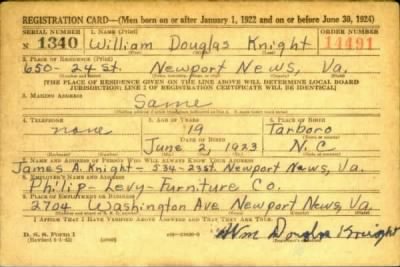 REGISTRATION CARD—(Men born on or after January 1, 1922 and on or before June 30, 1924)
SERIAL NUMBER 1. NAME (Print) ORDER NUMBER
N 1340 William Douglas Knight 14491
2. PLACE OF RESIDENCE (Print)
650- 24 st. Newport News, Va.
(THE PLACE OF RESIDENCE GIVEN ON THE LINE ABOVE WILL DETERMINE LOCAL BOARD
JURISDICTION; LINE 1 OF REGISTRATION CERTIFICATE WILL BE IDENTICAL)
3. MAILING ADDRESS
Same
4. TELEPHONE 5. AGE IN YEARS 6. PLACE OF BIRTH
none 19 Tarboro
DATE OF BIRTH
June 2, 1923 N.C
7. NAME AND ADDRESS OF PERSON WHO WILL ALWAYS KNOW YOUR ADDRESS
James A. Knight- 534-23st. Newport News, Va.
8. EMPLOYER'S NAME AND ADDRESS
Philip-Levy-Furniture Co.
9. PLACE OF EMPLOYMENT OR BUSINESS
2704 Washington Ave Newport News, Va.
I AFFIRM THAT I HAVE VERIFIED ABOVE ANSWERS AND THAT THEY ARE TRUE.
D. S. S. Form 1
Wm Douglas Knight